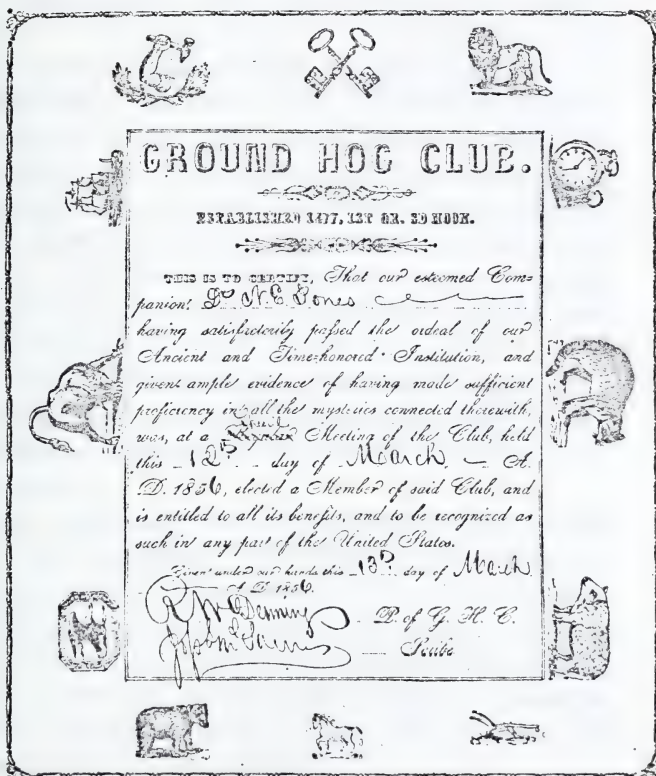 GROUND HOG CLUB.
ESTABLISHED 1477, 1ST QR. 3D MOON.
THIS IS TO CERTIFY, That our esteemed Com-
panion, Dr N. E. Jones
having satisfactorily passed the ordeal of our
Ancient and Time-honored Institution, and
given ample evidence of having made sufficient
proficiency in all the mysteries connected therewith,
was, at a Meeting of the Club, held
this 12th day of March A.
D. 1856, elected a Member of said Club, and
is entitled to all its benefits, and to be recognized as
such in any part of the United States.
Given under our hands this 13th day of March
A. D. 1856.
P. of G. H. C.
Scribe